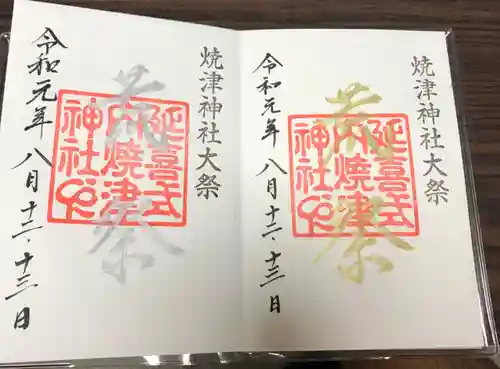 焼津神社大祭
荒祭
延喜式
内焼津
神社之印
令和元年 八月十二・十三日
焼津神社大祭
荒祭
延喜式
内焼津
神社之印
令和元年 八月十二・十三日